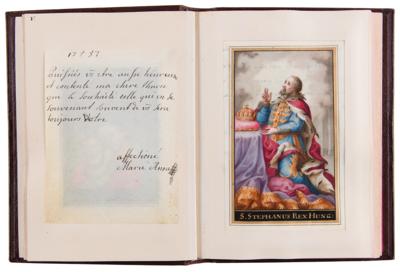 1757
Puissiés vs être aussi heureuse
et contente ma chere
que le souhaite celle qui en se
souvenant souvent de vs sera
toujours Votre
affectioné
Marie Anne
S. STEPHANUS REX HUNG: